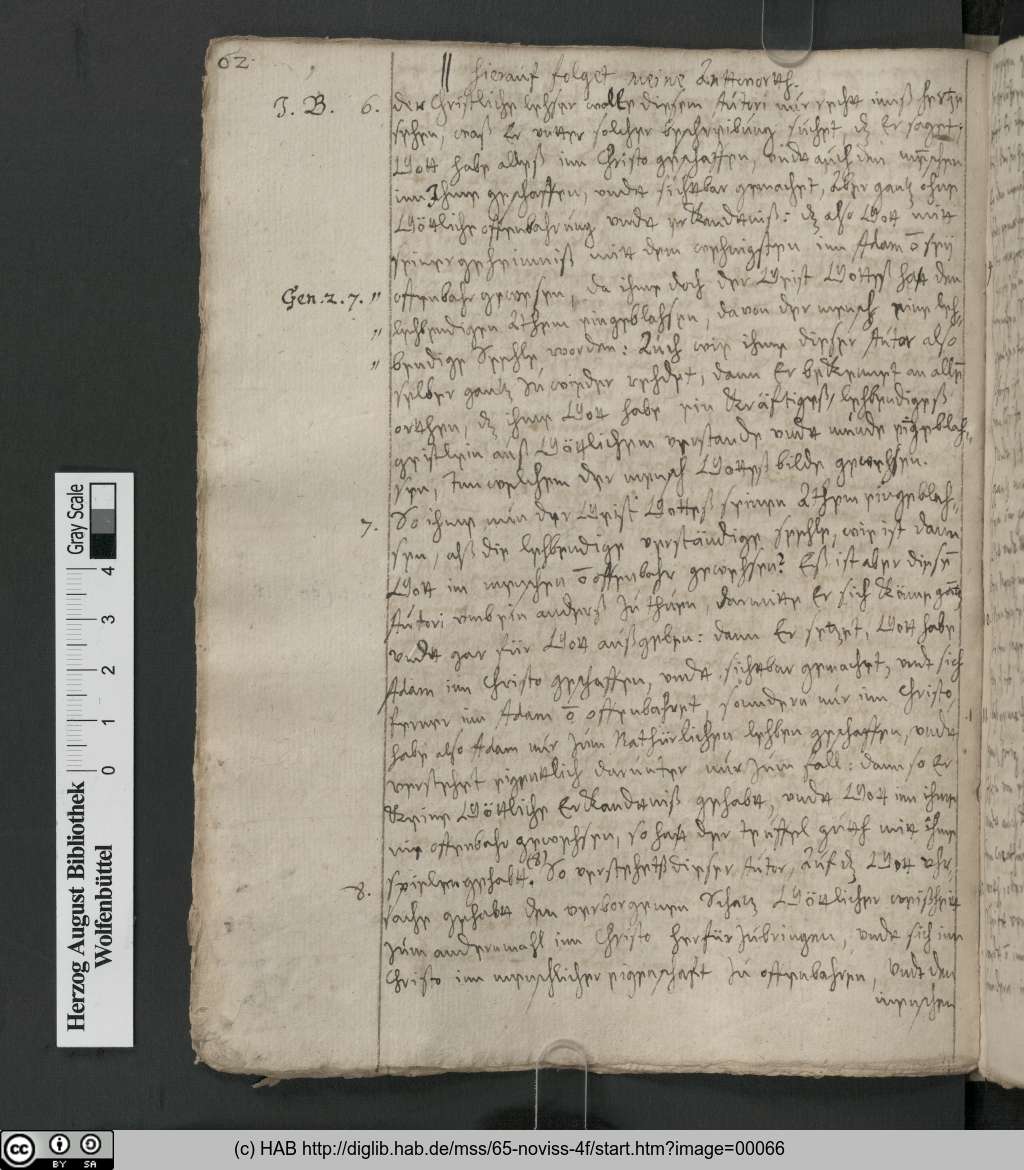 62.
|| hierauf folget meine Anttworth.
J. B. 6. der Christliche lehser wolle diesem Autori nur recht inniß hertze
sehen, waß Er unter solcher beschreibung suchet, dz Er saget:
Gott habe alleß inn Christo geschaffen, undt auch den menschen
inn Ihme geschaffen, undt sichtbar gemachet, Aber gantz ohne
Göttliche offenbahrung undt erkandtniß: dz also Gott mitt
seiner geheimniß mitt dem wehnigsten inn Adam ō seÿ
Gen. 2. 7. " offenbahr gewesen, da ihme doch der Geist Gotteß hatt den
" lehbendigen Athem eingeblahsen, davon der mensch eine leh-
" bendige Seehle worden: Auch wie ihme dieser Autor also
selber gantz zu wieder rehdet, dann Er bekennet an allen
orthen, dz ihme Gott habe ein kräftigeß, lehbendigeß
geistlein auß Göttlichem verstande undt munde eingeblah-
sen, Inn welchem der mensch Gotteß bilde gewehsen.
7. So ihme nun der Geist Gotteß seinen Athem eingeblah-
sen, alß die lehbendige verständige Seehle, wie ist dann
Gott im menschen ō offenbahr gewehsen? Eß ist aber diesem
Autori umb ein anderß zu thuen, darmitte Er sich könne gantz
undt gar für Gott außgeben: dann Er setzet, Gott habe
Adam inn Christo geschaffen, undt sichtbar gemachet, undt sich
ferner im Adam ō offenbahret, sondern nur inn Christo
habe also Adam nur zum Nathürlichen lehben geschaffen, undt
verstehet eigentlich darunter nur zum fall: dann so Er
keine Göttliche Erkandtniß gehabt, undt Gott inn ihme
nie offenbahr gewehsen, so hatt der teuffel guth mitt ihme
8. spielen gehabt. (8) So verstehetß dieser Autor, Auf dz Gott uhr-
sache gehabt den verborgenen Schatz Göttlicher weißheit
zum andernmahl inn Christo herfür zubringen, undt sich inn
Christo inn menschlicher eigenschaft zu offenbahren, Undt den
menschen
Gray Scale
0 1 2 3 4
Herzog August Bibliothek
Wolfenbüttel
cc BY SA
(c) HAB http://diglib.hab.de/mss/65-noviss-4f/start.htm?image=00066